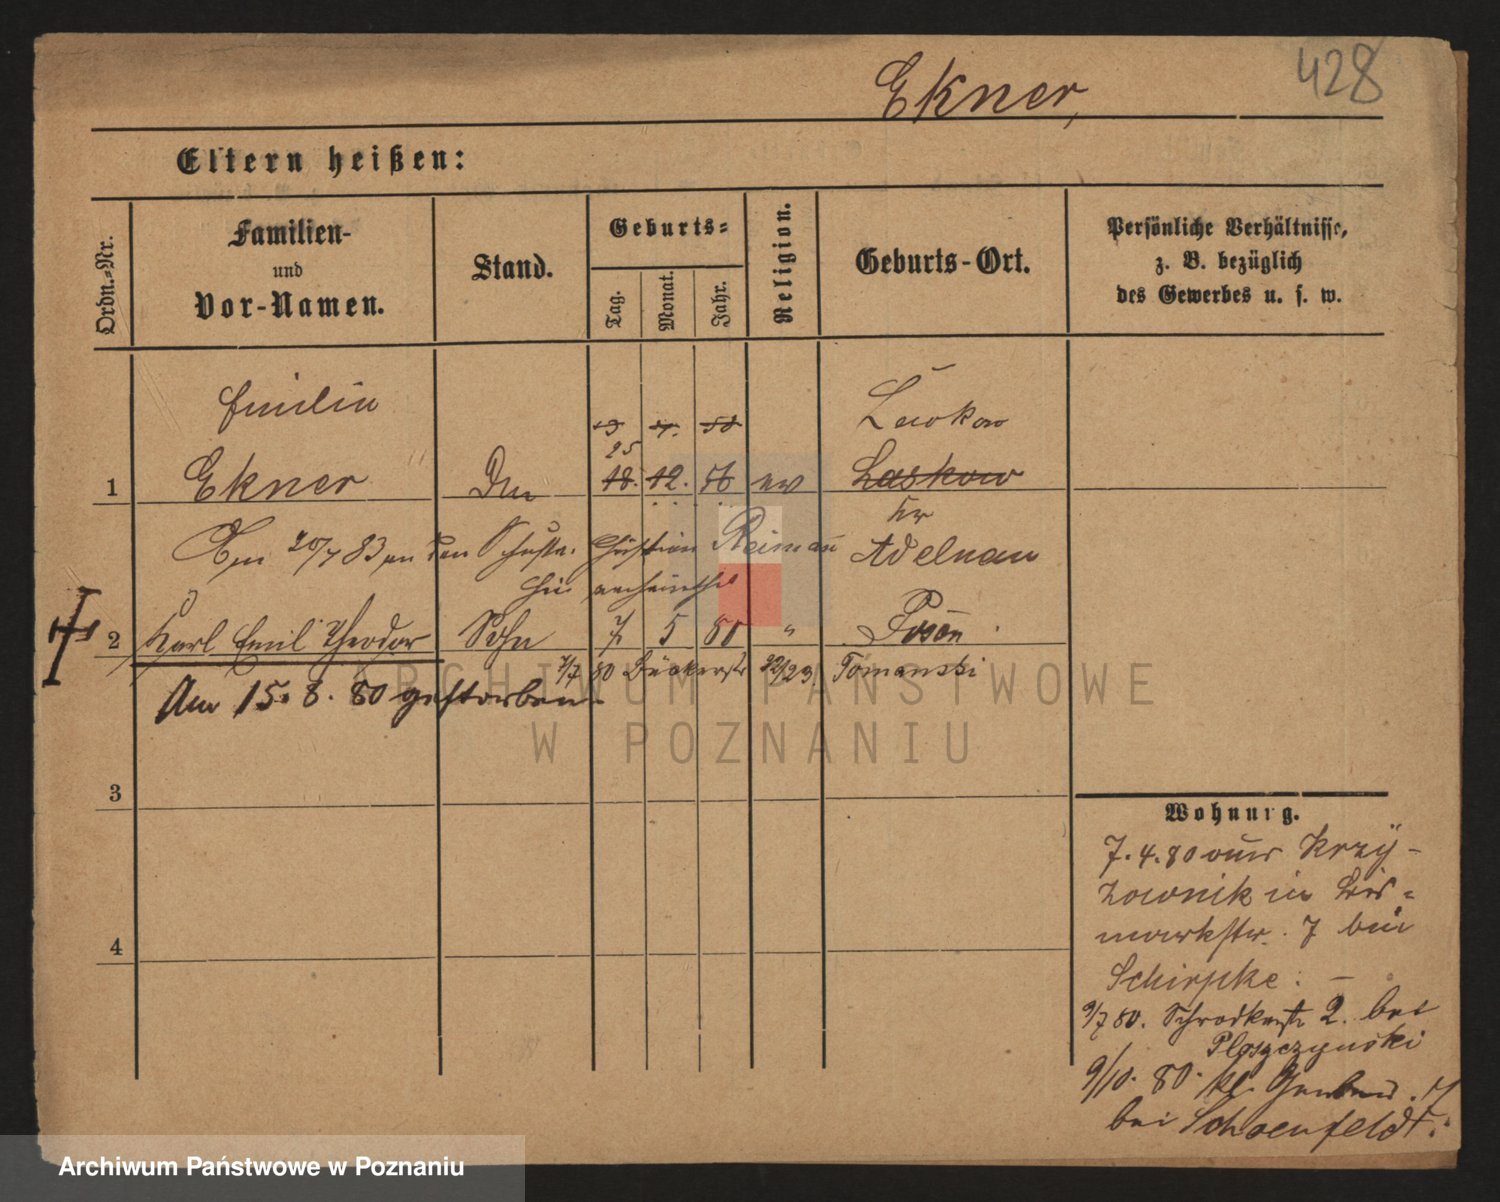 428
Ekner,
Eltern heißen:
Ordn.-Nr.
Familien-
und
Vor-Namen.
Stand.
Geburts-
Tag.
Monat.
Jahr.
Religion.
Geburts-Ort.
Persönliche Verhältnisse,
z. B. bezüglich
des Gewerbes u. s. w.
Emilie
Lewkow
25
1 Ekner 18. 12. 56 ev Laskow
Kr
Am 20/7 83 an den Christian Reimann Adelnau
hier
2 Karl Emil Theodor Sohn 7 5 80 " Posen
7/7 80 Bäckerstr 22/23. Tomanski
Am 15. 8. 80 gestorben
3
4
Wohnung.
7. 4. 80 aus Krzy-
zownik in Bis-
markstr. 7 bei
Schirpke. –
9/7 80. Schrodkastr 2. bei
Ploszczynski
9/10. 80. kl. Gerber
bei Schoenfeldt.
ARCHIWUM PAŃSTWOWE
W POZNANIU
Archiwum Państwowe w Poznaniu